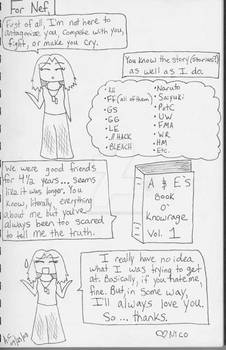 For Nef,
First of all, I'm not here to
antagonize you, compete with you,
fight, or make you cry.
You know the story
as well as I do.
FF (all of them)
GS
GG
LE
.//HACK
BLEACH
Naruto
Saiyuki
PotC
UW
FMA
WR
HM
Etc.
We were good friends
for 4 1/2 years... seems
like it was longer. You
know, literally, everything
about me but you've
always been too scared
to tell me the truth.
A & E's
Book
O'
Knowrage
Vol. 1
I really have no idea
what I was trying to get
at. Basically, if you hate me,
fine. But, in some way,
I'll always love you.
So... thanks.
♡Nico